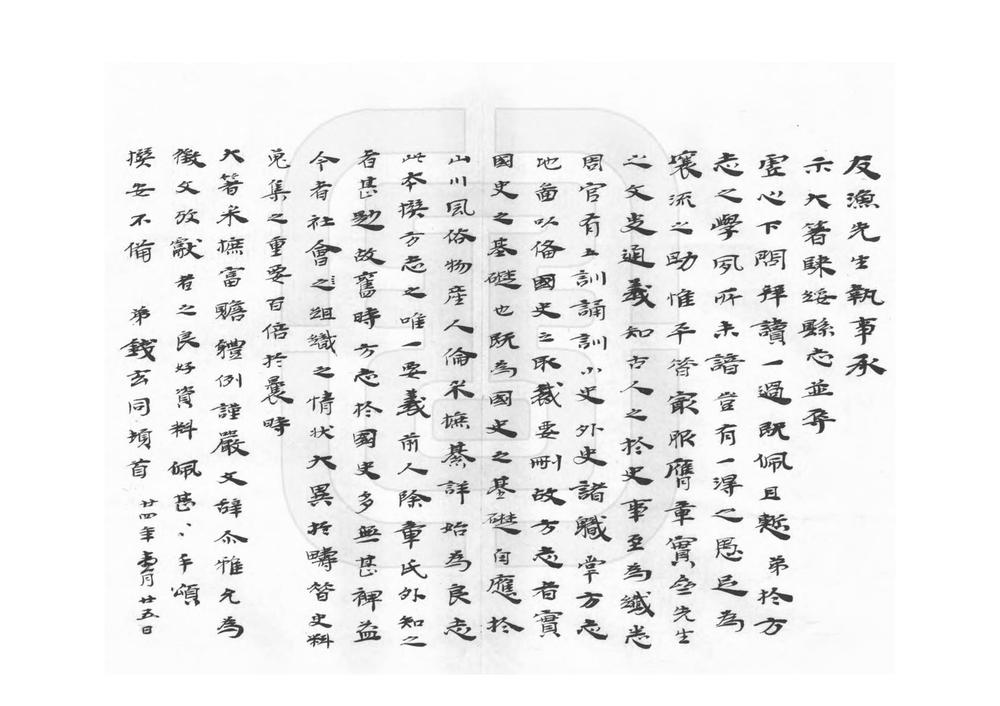 友漁先生執事承
示大箸肤綏縣志並辱
虛心下問拜讀一過既佩且慙弟於方
志之學夙所未諳豈有一得之愚足為
襄流之助惟平昔㝡服膺章實齋先生
之文史通義知古人之於史事至為纖悉
周官有土訓誦訓小史外史諸職掌方志
地啚以俻國史之取裁要刪故方志者實
國史之基礎也既為國史之基礎自應於
山川風俗物產人倫采摭綦詳始為良志
此本撰方志之唯一要義前人除章氏外知之
者甚尠故舊時方志於國史多無甚裨益
今者社會之組織之情狀大異於疇昔史料
蒐集之重要百倍於曩時
大箸采摭富贍體例謹嚴文辭亦雅允為
徵文攷獻者之良好資料佩甚、手頌
撰安不備 弟錢玄同頓首 廿四年壹月廿五日